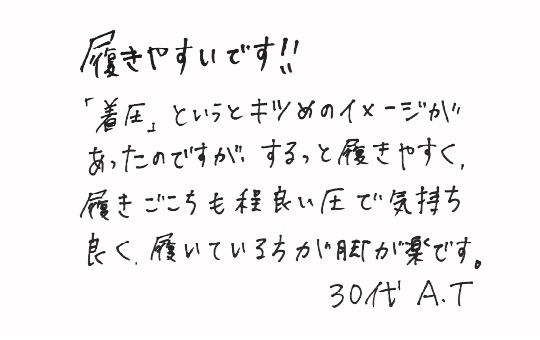 履きやすいです!!
「着圧」というとキツめのイメージが
あったのですが、するっと履きやすく、
履きごこちも程良い圧で気持ち
良く、履いているちが脚が楽です。
30代 A.T